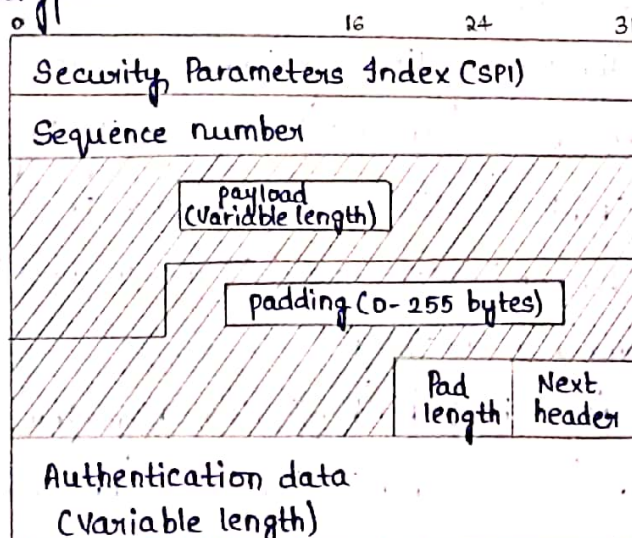 0 16 24 3
Security Parameters Index (SPI)
Sequence number
payload
(Variable length)
padding (0-255 bytes)
Pad Next
length header
Authentication data
(Variable length)